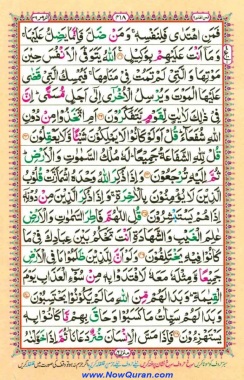 ٣١٨
فَمَنِ اهْتَدٰى فَلِنَفْسِهٖ ۚ وَمَنْ ضَلَّ فَاِنَّمَا يَضِلُّ عَلَيْهَا ۚ
وَمَاۤ اَنْتَ عَلَيْهِمْ بِوَكِيْلٍ اَللّٰهُ يَتَوَفَّى الْاَنْفُسَ حِيْنَ
مَوْتِهَا وَالَّتِيْ لَمْ تَمُتْ فِيْ مَنَامِهَا ۚ فَيُمْسِكُ الَّتِيْ قَضٰى
عَلَيْهَا الْمَوْتَ وَيُرْسِلُ الْاُخْرٰۤى اِلٰۤى اَجَلٍ مُّسَمًّى ؕ اِنَّ
فِيْ ذٰلِكَ لَاٰيٰتٍ لِّقَوْمٍ يَّتَفَكَّرُوْنَ اَمِ اتَّخَذُوْا مِنْ دُوْنِ
اللّٰهِ شُفَعَآءَ ؕ قُلْ اَوَلَوْ كَانُوْا لَا يَمْلِكُوْنَ شَيْـًٔا وَّلَا يَعْقِلُوْنَ
قُلْ لِّلّٰهِ الشَّفَاعَةُ جَمِيْعًا ؕ لَهٗ مُلْكُ السَّمٰوٰتِ وَالْاَرْضِ ؕ
ثُمَّ اِلَيْهِ تُرْجَعُوْنَ وَاِذَا ذُكِرَ اللّٰهُ وَحْدَهُ اشْمَاَزَّتْ قُلُوْبُ
الَّذِيْنَ لَا يُؤْمِنُوْنَ بِالْاٰخِرَةِ ۚ وَاِذَا ذُكِرَ الَّذِيْنَ مِنْ دُوْنِهٖۤ
اِذَا هُمْ يَسْتَبْشِرُوْنَ قُلِ اللّٰهُمَّ فَاطِرَ السَّمٰوٰتِ وَالْاَرْضِ
عٰلِمَ الْغَيْبِ وَالشَّهَادَةِ اَنْتَ تَحْكُمُ بَيْنَ عِبَادِكَ فِيْ مَا
كَانُوْا فِيْهِ يَخْتَلِفُوْنَ وَلَوْ اَنَّ لِلَّذِيْنَ ظَلَمُوْا مَا فِي الْاَرْضِ
جَمِيْعًا وَّمِثْلَهٗ مَعَهٗ لَافْتَدَوْا بِهٖ مِنْ سُوْٓءِ الْعَذَابِ يَوْمَ
الْقِيٰمَةِ ؕ وَبَدَا لَهُمْ مِّنَ اللّٰهِ مَا لَمْ يَكُوْنُوْا يَحْتَسِبُوْنَ
وَبَدَا لَهُمْ سَيِّاٰتُ مَا كَسَبُوْا وَحَاقَ بِهِمْ مَّا كَانُوْا بِهٖ
يَسْتَهْزِءُوْنَ فَاِذَا مَسَّ الْاِنْسَانَ ضُرٌّ دَعَانَا ؗ ثُمَّ اِذَا خَوَّلْنٰهُ
www.NowQuran.com